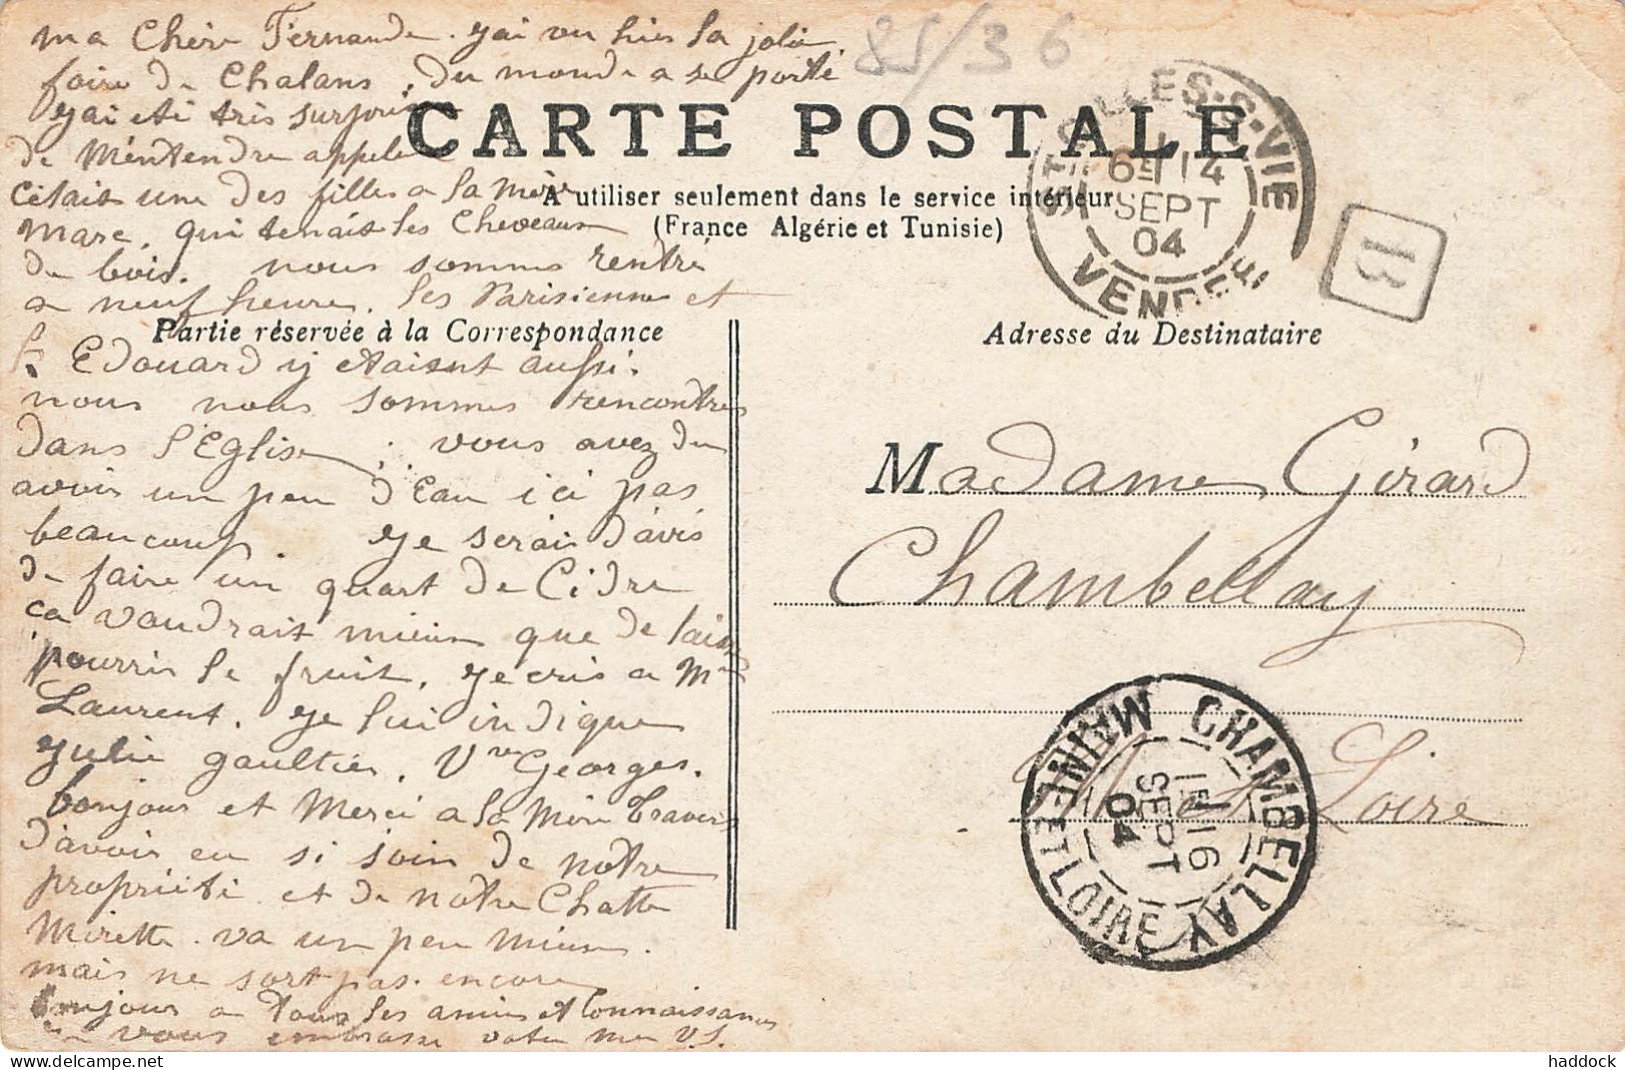 ma Chère Fernande. j'ai vu hier la jolie
foire de Chalans, du monde a se porté
85/36
j'ai eté très surpris
CARTE POSTALE
de m'entendre appeler
A utiliser seulement dans le service intérieur
(France Algérie et Tunisie)
c'était une des filles a la mère
marc, qui tenait les Cheveaux
de bois. nous sommes rentré
a neuf heure. les Parisiennes et
Partie réservée à la Correspondance
Adresse du Destinataire
Edouard y etaient aussi.
nous nous sommes rencontrés
dans l'Eglise, vous avez du
avoir un peu d'eau ici pas
beaucoup. je serai d'avis
de faire un quart de Cidre
ca vaudrait mieux que de laisser
pourrir le fruit, je cris a Mme
Laurent. je lui indique
julie gaultier, Vve Georges.
bonjour et Merci a la Mère Travers
d'avoir eu si soin de notre
propriété et de notre Chatte
Mirette. va un peu mieux.
mais ne sort pas encore
bonjour a tous les amis et Connaissances
vous embrasse votre mère V.S.
Madame Girard
Chambellay
M et Loire
ST GILLES-S-VIE
6E 14
SEPT
04
VENDÉE
B
CHAMBELLAY
1E 16
SEPT
04
MAINE ET LOIRE
haddock